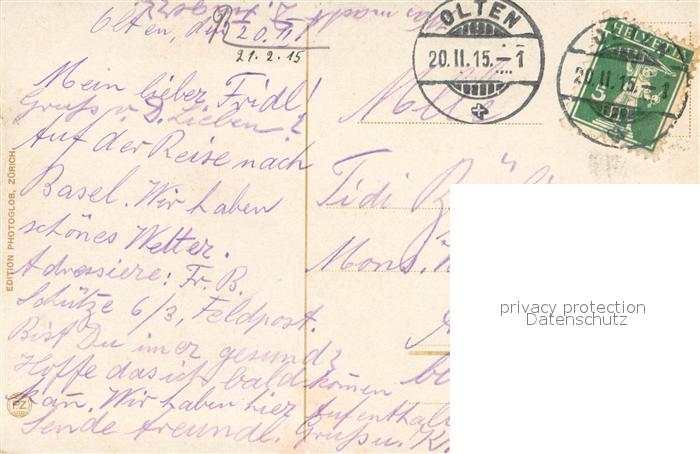 Olten, den 20.II.
21.2.15
Mein lieber Fridl!
Gruss v. D. Lieben
Auf der Reise nach
Basel. Wir haben
schönes Wetter.
Adressiere: Fr. B.
Schütze 6/3, Feldpost.
Bist Du imer gesund?
Hoffe das ich bald komen
kan. Wir haben hier Aufenthalt
Sende freundl. Gruss u. K.
OLTEN
20.II.15.-1
HELVETIA
5
20.II.15.-1
Mlle
Tidi
Mons.
EDITION PHOTOGLOB, ZÜRICH.
PZ
privacy protection
Datenschutz